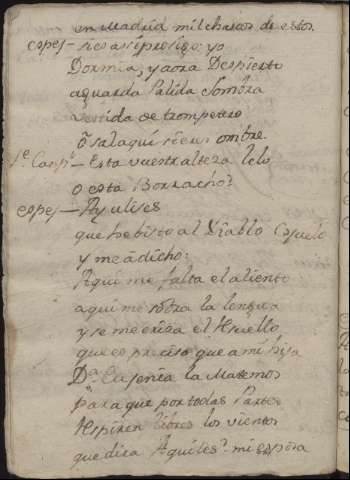 en Madrid mil chascos de estos.
espej – sies asi prosigo: yo
Dormia, y aora Despierto
aguarda Palida Sombra
vestida de trompetero
õ sal aqui si eres ombre.
– Esta vuestra alteza lelo
o esta Borracho?
espej – Ay ulises
que he bisto al Diablo Cojuelo
y me a dicho:
Aqui me falta el aliento
aqui me sobra la lengua
y se me eriza el
que es preciso que a mi hija
Dª. Eugenia la Matemos
para que por todas Partes
Espiren libres los vientos
que dira Aquiles? mi esposa